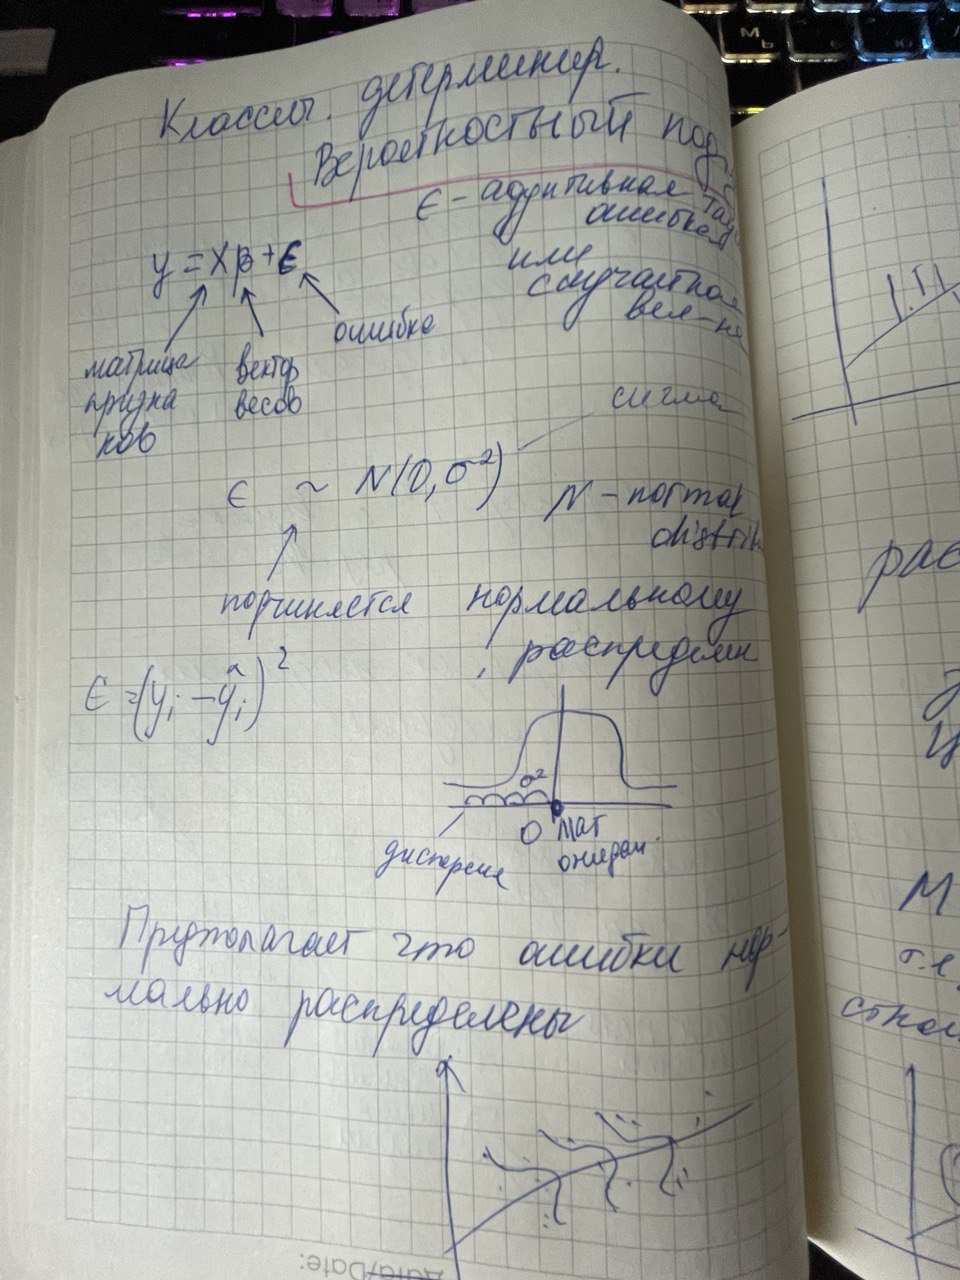 Классич. детерминир.
Вероятностный под
ϵ - аддитивная
ошибка
или
случайная
вел-на
y = Xβ + ϵ
ошибка
матрица
призна
ков
вектор
весов
сигма
ϵ ~ N(0, σ²)
N - normal
distrib
подчиняется нормальному
распределен
ϵ = (yᵢ - ŷᵢ)²
σ²
0 мат
ожидан.
дисперсия
Предполагает что ошибки нор-
мально распределены
Дата/Date:
рас
М
т.е.
Ь
Ю